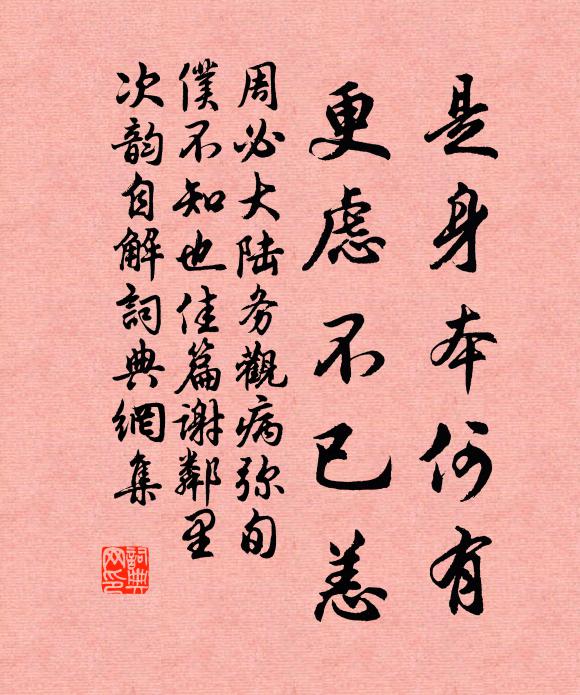 是身本何有
更虑不已恙
周必大陆务觀病弥旬
僕不知也佳篇谢鄰里
次韵自解詞典網集
詞典网印